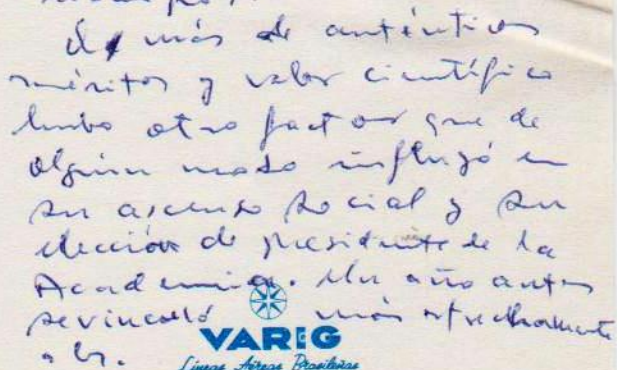 más de auténticos
méritos y valor científico
hubo otro factor que de
algún modo influyó en
su ascenso social y su
elección de presidente de la
Academia. Un año antes
se vinculó más estrechamente
a
VARIG
Líneas Aéreas Brasileñas